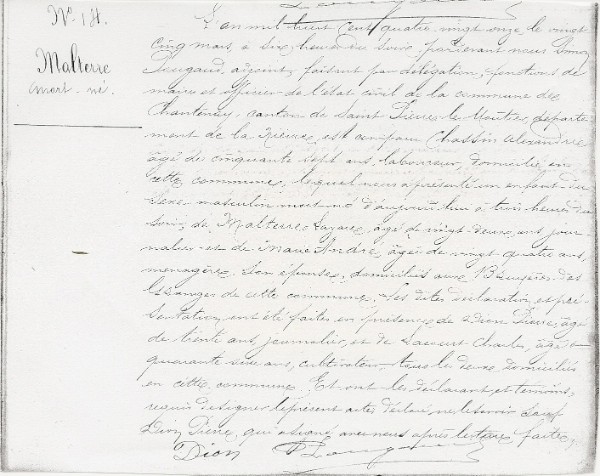 N° 18.
Malterre
mort-né.
L'an mil huit cent quatre vingt onze le vingt
cinq mars, à six heures du soir, pardevant nous
adjoint, faisant par délégation, fonctions de
maire et officier de l'état civil de la commune de
Chantenay, canton de Saint Pierre le Moutier départe
ment de la Nièvre, est comparu Chassin Alexandre
âgé de cinquante sept ans, laboureur, domicilié en
cette commune, lequel nous a présenté un enfant du
sexe masculin mort-né d'aujourd'hui à trois heures du
soir, de Malterre Lazare, âgé de vingt deux ans jour
nalier et de Marie André, âgée de vingt quatre ans,
ménagère, son épouse, domiciliés aux Bruyères des
de cette commune. Les dites déclaration et pré
sentation, ont été faites en présence de Dion Pierre, âgé
de trente ans, journalier, et de Charles, âgé de
quarante ans, cultivateur, tous les deux domiciliés
en cette commune. Et ont les déclarant et témoins,
requis de signer le présent acte déclaré ne le savoir sauf
Dion Pierre, qui a signé avec nous après lecture faite.
Dion